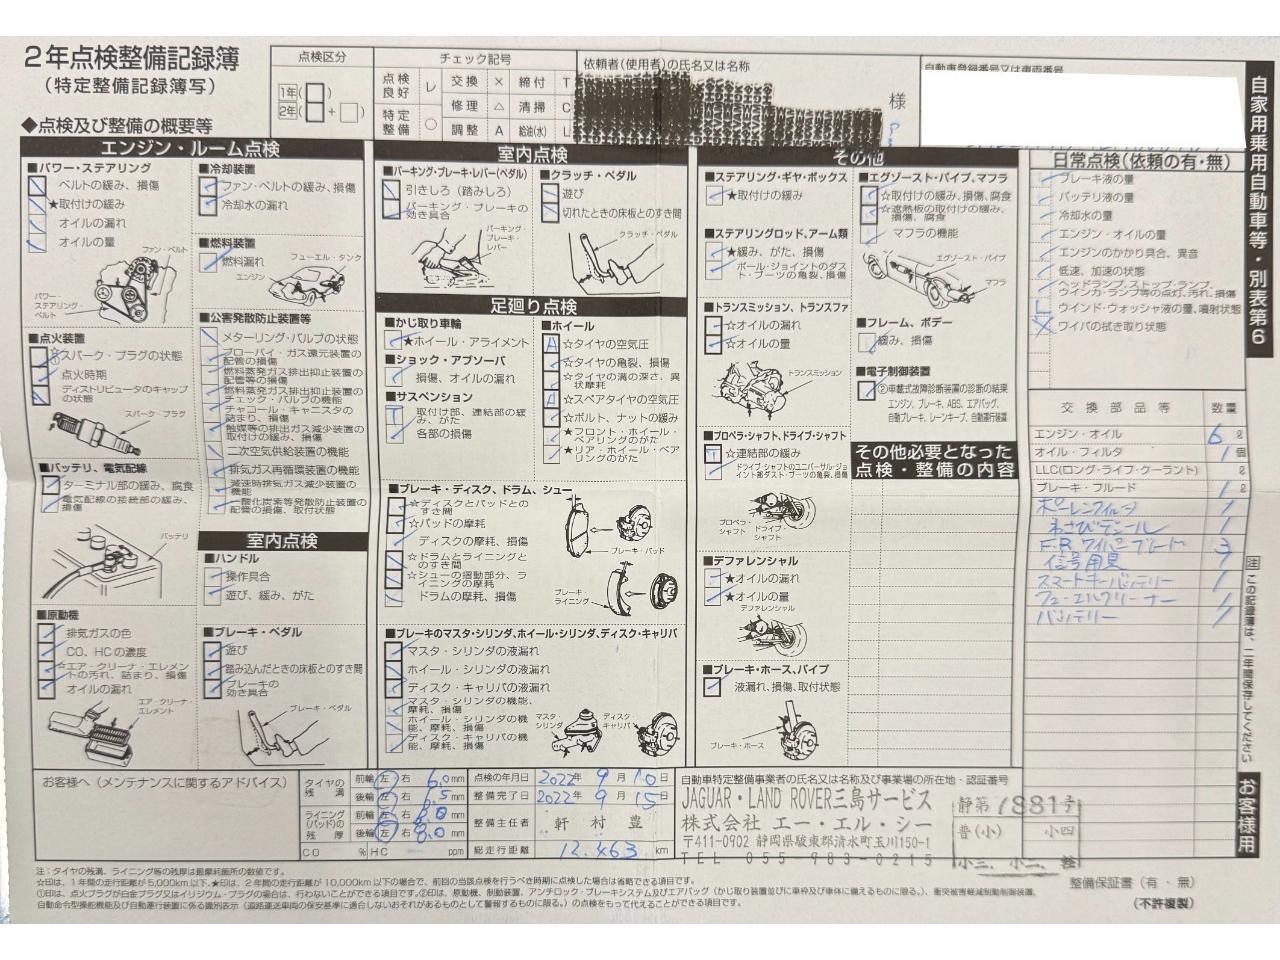 2年点検整備記録簿
(特定整備記録簿写)
点検区分
1年( )
2年( )+
チェック記号
点検良好 レ 交換 × 締付 T
修理 △ 清掃 C
特定整備 ○ 調整 A 給油(水) L
依頼者(使用者)の氏名又は名称
様
自動車登録番号又は車両番号
自家用乗用自動車等・別表第6
◆点検及び整備の概要等
エンジン・ルーム点検
■パワー・ステアリング
ベルトの緩み、損傷
★取付けの緩み
オイルの漏れ
オイルの量
ファン・ベルト
パワー・ステアリング・ベルト
■点火装置
☆スパーク・プラグの状態
点火時期
ディストリビュータのキャップの状態
スパーク・プラグ
■バッテリ、電気配線
ターミナル部の緩み、腐食
電気配線の接続部の緩み、損傷
バッテリ
■原動機
排気ガスの色
CO、HCの濃度
☆エア・クリーナ・エレメントの汚れ、詰まり、損傷
オイルの漏れ
エア・クリーナ・エレメント
■冷却装置
ファン・ベルトの緩み、損傷
冷却水の漏れ
■燃料装置
燃料漏れ
フューエル・タンク
エンジン
■公害発散防止装置等
メターリング・バルブの状態
ブローバイ・ガス還元装置の配管の損傷
燃料蒸発ガス排出抑止装置の配管等の損傷
燃料蒸発ガス排出抑止装置のチェック・バルブの機能
チャコール・キャニスタの詰まり、損傷
触媒等の排出ガス減少装置の取付けの緩み、損傷
二次空気供給装置の機能
排気ガス再循環装置の機能
減速時排気ガス減少装置の機能
一酸化炭素等発散防止装置の配管の損傷、取付状態
室内点検
■ハンドル
操作具合
遊び、緩み、がた
■ブレーキ・ペダル
遊び
踏み込んだときの床板とのすき間
ブレーキの効き具合
ブレーキ・ペダル
室内点検
■パーキング・ブレーキ・レバー(ペダル)
引きしろ(踏みしろ)
パーキング・ブレーキの効き具合
パーキング・ブレーキ・レバー
■クラッチ・ペダル
遊び
切れたときの床板とのすき間
クラッチ・ペダル
足廻り点検
■かじ取り車輪
★ホイール・アライメント
■ショック・アブソーバ
損傷、オイルの漏れ
■サスペンション
取付け部、連結部の緩み
各部の損傷
■ホイール
☆タイヤの空気圧
☆タイヤの亀裂、損傷
☆タイヤの溝の深さ、異状摩耗
☆スペアタイヤの空気圧
☆ボルト、ナットの緩み
★フロント・ホイール・ベアリングのがた
★リア・ホイール・ベアリングのがた
■ブレーキ・ディスク、ドラム、シュー
☆ディスクとパッドとのすき間
☆パッドの摩耗
ディスクの摩耗、損傷
☆ドラムとライニングとのすき間
☆シューの摺動部分、ライニングの摩耗
ドラムの摩耗、損傷
ブレーキ・パッド
ブレーキ・ライニング
■ブレーキのマスタ・シリンダ、ホイール・シリンダ、ディスク・キャリパ
マスタ・シリンダの液漏れ
ホイール・シリンダの液漏れ
ディスク・キャリパの液漏れ
マスタ・シリンダの機能、摩耗、損傷
ホイール・シリンダの機能、摩耗、損傷
ディスク・キャリパの機能、摩耗、損傷
マスタ・シリンダ
ディスク・キャリパ
その他
■ステアリング・ギヤ・ボックス
★取付けの緩み
■ステアリングロッド、アーム類
★緩み、がた、損傷
ボール・ジョイントのダスト・ブーツの亀裂、損傷
■トランスミッション、トランスファ
☆オイルの漏れ
☆オイルの量
トランスミッション
■プロペラ・シャフト、ドライブ・シャフト
☆連結部の緩み
ドライブ・シャフトのユニバーサル・ジョイント部ダスト・ブーツの亀裂、損傷
プロペラ・シャフト
ドライブ・シャフト
■デファレンシャル
★オイルの漏れ
★オイルの量
デファレンシャル
■ブレーキ・ホース、パイプ
液漏れ、損傷、取付状態
ブレーキ・ホース
■エグゾースト・パイプ、マフラ
☆取付けの緩み、損傷、腐食
☆遮熱板の取付けの緩み、損傷、腐食
マフラの機能
エグゾースト・パイプ
マフラ
■フレーム、ボデー
緩み、損傷
■電子制御装置
②車載式故障診断装置の診断の結果
エンジン、ブレーキ、ABS、エアバッグ、自動ブレーキ、レーンキープ、自動運行装置
その他必要となった点検・整備の内容
日常点検(依頼の有・無)
ブレーキ液の量
バッテリ液の量
冷却水の量
エンジン・オイルの量
エンジンのかかり具合、異音
低速、加速の状態
ヘッドランプ、ストップ・ランプ、ウインカ・ランプ等の点灯、汚れ、損傷
ウインド・ウォッシャ液の量、噴射状態
ワイパの拭き取り状態
交換部品等 数量
エンジン・オイル 6 ℓ
オイル・フィルタ 1 個
LLC(ロング・ライフ・クーラント) ℓ
ブレーキ・フルード 1 ℓ
ポーレンフィルター 1
わさびデェール 1
F.R.ワイパーブレード 3
信号用具 1
スマートキーバッテリー 1
フューエルクリーナー 1
バッテリー 1
注 この記録簿は、二年間保存してください
お客様用
お客様へ(メンテナンスに関するアドバイス)
タイヤの残溝 前輪 左 右 6.0 mm
後輪 左 右 6.5 mm
ライニング(パッド)の残厚 前輪 左 右 8.0 mm
後輪 左 右 8.0 mm
CO % HC ppm
点検の年月日 2022年 9月 10日
整備完了日 2022年 9月 15日
整備主任者 軒村 豊
総走行距離 12,463 km
自動車特定整備事業者の氏名又は名称及び事業場の所在地・認証番号
JAGUAR・LAND ROVER三島サービス
株式会社 エー・エル・シー
〒411-0902 静岡県駿東郡清水町玉川150-1
TEL 055-983-0215
静第1881号
普(小) 小四
小三、小二、軽
注:タイヤの残溝、ライニング等の残厚は最摩耗箇所の数値です。
☆印は、1年間の走行距離が5,000km以下、★印は、2年間の走行距離が10,000km以下の場合で、前回の当該点検を行うべき時期に点検した場合は省略できる項目です。
①印は、点火プラグが白金プラグ又はイリジウム・プラグの場合は、行わないことができる項目です。②印は、原動機、制動装置、アンチロック・ブレーキシステム及びエアバッグ(かじ取り装置並びに車枠及び車体に備えるものに限る。)、衝突被害軽減制動制御装置、
自動命令型操舵機能及び自動運行装置に係る識別表示(道路運送車両の保安基準に適合しないおそれがあるものとして警報するものに限る。)の点検をもって代えることができる項目です。
整備保証書(有・無)
(不許複製)